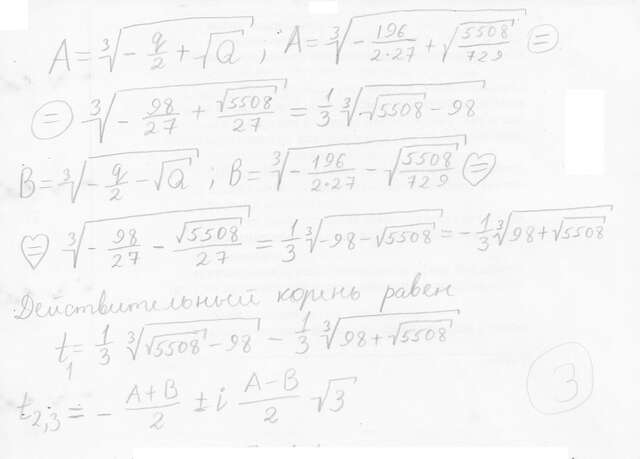 A = ∛(-q/2 + √Q) ; A = ∛(-196/(2·27) + √(5508/729)) =
= ∛(-98/27 + √5508/27) = 1/3 ∛(√5508 - 98)
B = ∛(-q/2 - √Q) ; B = ∛(-196/(2·27) - √(5508/729)) =
= ∛(-98/27 - √5508/27) = 1/3 ∛(-98 - √5508) = -1/3 ∛(98 + √5508)
Действительный корень равен
t₁ = 1/3 ∛(√5508 - 98) - 1/3 ∛(98 + √5508)
t₂,₃ = - (A+B)/2 ± i (A-B)/2 √3
3